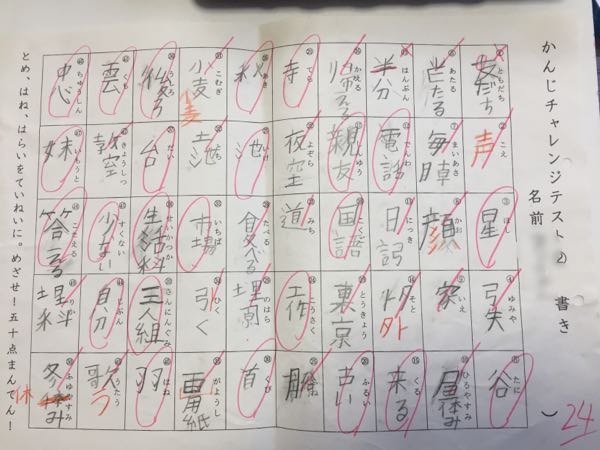 かんじチャレンジテスト② 書き
名前
① ともだち 友だち
② こえ 声
③ ほし 星
④ ゆみや 弓矢
⑤ たに 谷
⑥ あたる 当たる
⑦ まいあさ 毎朝
⑧ かお 顔
⑨ いえ 家
⑩ ひるやすみ 昼休み
⑪ はんぶん 半分
⑫ でんわ 電話
⑬ にっき 日記
外
⑮ くる 来る
⑯ かえる 帰る
⑰ 親友
⑱ こくご 国語
⑲ とうきょう 東京
⑳ ふるい 古い
㉑ てら 寺
㉒ よぞら 夜空
㉓ みち 道
㉔ こうさく 工作
㉕
㉖ あき 秋
㉗ いけ 池
㉘ たべる 食べる
㉙ のはら
㉚ くび 首
㉛ こむぎ 小麦
小麦
㉜ 地
㉝ いちば 市場
㉞ ひく 引く
㉟ がようし 画用紙
㊱ うしろ 後ろ
㊲ だい 台
㊳ せいかつか 生活科
さんにんぐみ 三人組
はね 羽
くも 雲
きょうしつ 教室
すくない 少ない
じぶん 自分
うたう 歌う
う
ちゅうしん 中心
いもうと 妹
こたえる 答える
りか 理科
㊿ ふゆやすみ 冬休み
休
とめ、はね、はらいをていねいに。めざせ！五十点まんてん！
24